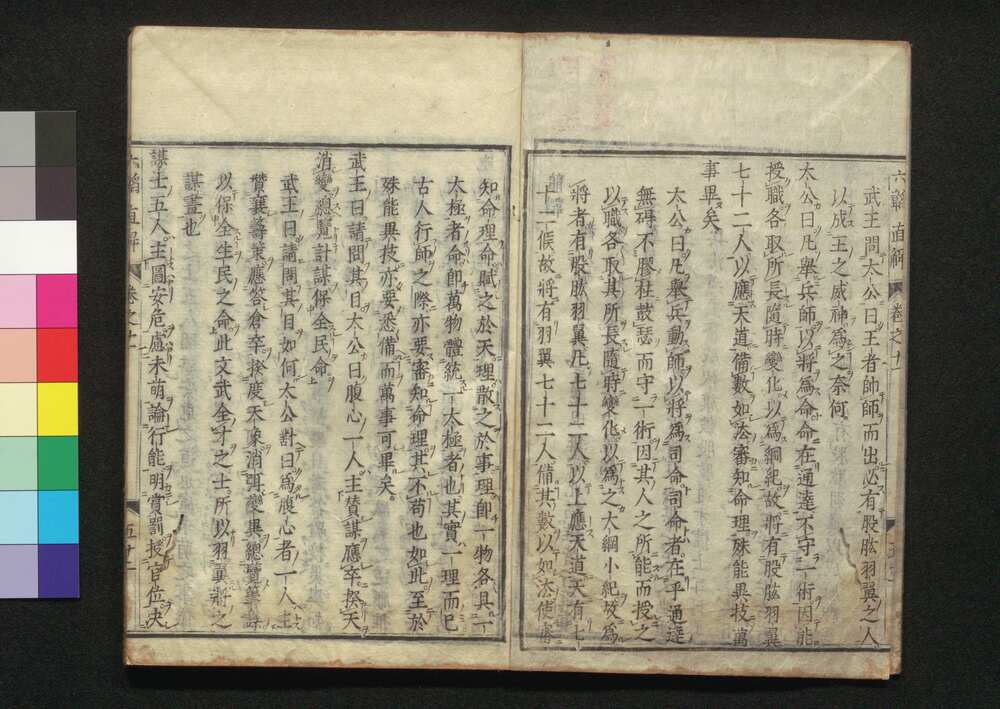 六韜直解 卷之
武王問太公曰王者帥師而出必有股肱羽翼之人
以成王之威神爲之奈何
太公曰凡舉兵師以將爲命命在通達不守一術因能
授職各取所長隨時變化以爲綱紀故將有股肱羽翼
七十二人以應天道備數如法審知命理殊能異技萬
事畢矣
太公曰凡舉兵動師以將爲司命司命者在乎通達
無碍不膠柱鼓瑟而守一術因其人之所能而授之
以職各取其所長隨時變化以爲之大綱小紀故爲
將者有股肱羽翼凡七十二人以上應天道天有七
十二候故將有羽翼七十二人備其數以如法使審
知命理命賦之於天理散之於事理卽一物各具一
太極者命卽萬物體統一太極者也其實一理而已
古人行師之際亦要審知命理其不苟也如此至於
殊能異技亦要悉備而萬事可畢矣
武王曰請問其目太公曰腹心一人主賛謀應卒揆天
消變總覽計謀保全民命
武王曰請問其目如何太公計曰爲腹心者一人主
賛襄籌策應答倉卒揆度天象消弭變異總覽籌謀
以保全生民之命此文武全才之士所以羽翼將之
謀畫也
謀士五人主圖安危慮未萌論行能明賞罰授官位决
六韜直解 卷之 五十二